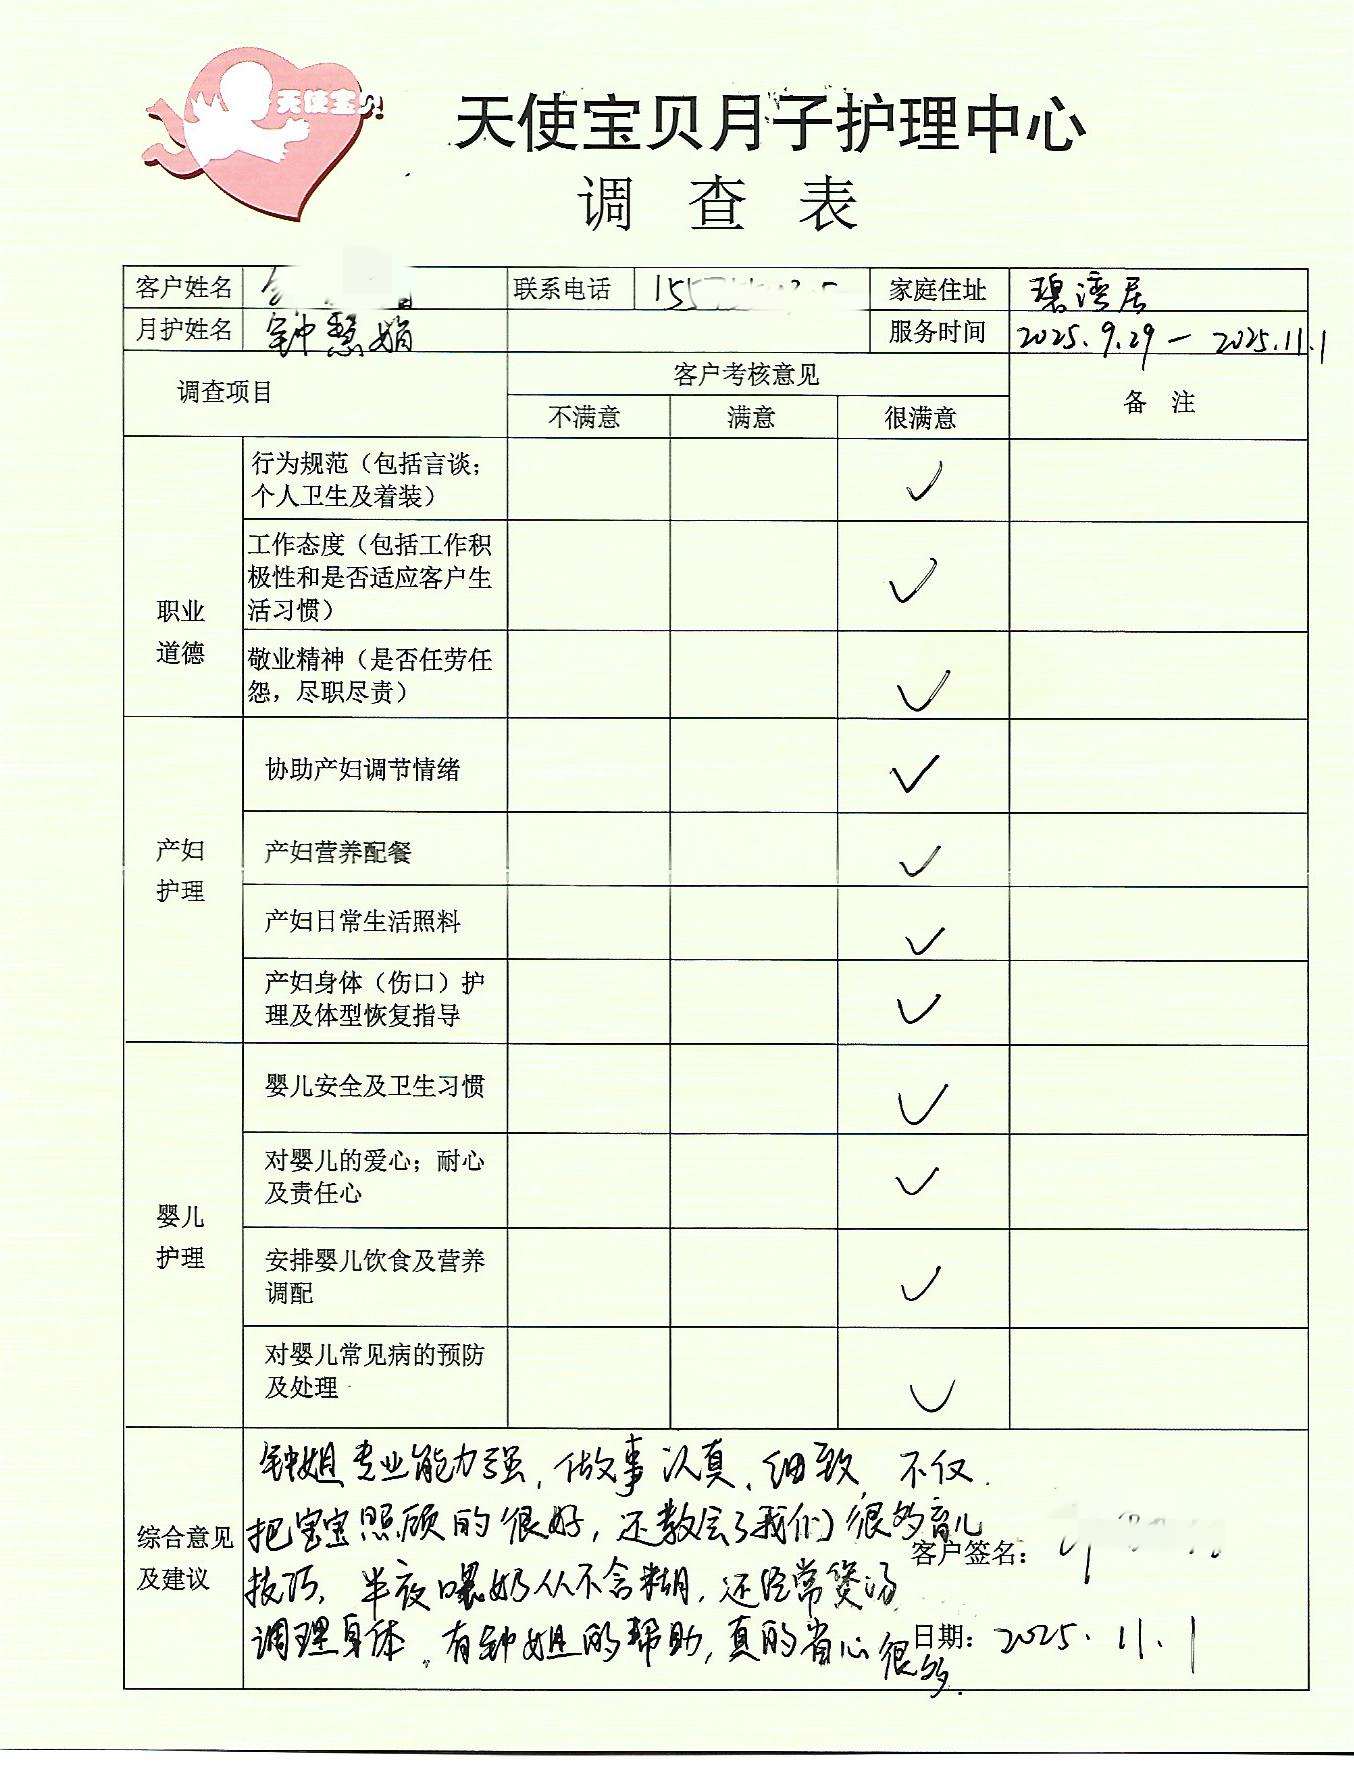 天使宝贝
天使宝贝月子护理中心
调 查 表
客户姓名 联系电话 155 家庭住址 碧湾居
月护姓名 钟慧娟 服务时间 2025.9.29－2025.11.1
调查项目 客户考核意见 备 注
不满意 满意 很满意
职业
道德
行为规范（包括言谈；
个人卫生及着装）
✓
工作态度（包括工作积
极性和是否适应客户生
活习惯）
✓
敬业精神（是否任劳任
怨，尽职尽责）
✓
产妇
护理
协助产妇调节情绪 ✓
产妇营养配餐 ✓
产妇日常生活照料 ✓
产妇身体（伤口）护
理及体型恢复指导
✓
婴儿
护理
婴儿安全及卫生习惯 ✓
对婴儿的爱心；耐心
及责任心
✓
安排婴儿饮食及营养
调配
✓
对婴儿常见病的预防
及处理
✓
综合意见
及建议
钟姐专业能力强，做事认真、细致，不仅
把宝宝照顾的很好，还教会了我们很多育儿
技巧，半夜喂奶从不含糊，还经常煲汤
调理身体。有钟姐的帮助，真的省心很
多.
客户签名：
日期：2025.11.1